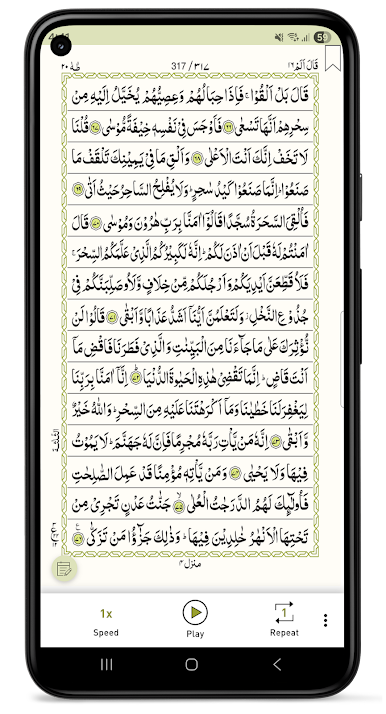 59
طٰهٰ ٢٠
317 / ٣١٧
قَالَ اَلَمْ ١٦
قَالَ بَلْ اَلْقُوْا ۚ فَاِذَا حِبَالُهُمْ وَعِصِيُّهُمْ يُخَيَّلُ اِلَيْهِ مِنْ
سِحْرِهِمْ اَنَّهَا تَسْعٰى ﴿٦٦﴾ فَاَوْجَسَ فِيْ نَفْسِهٖ خِيْفَةً مُّوْسٰى ﴿٦٧﴾ قُلْنَا
لَا تَخَفْ اِنَّكَ اَنْتَ الْاَعْلٰى ﴿٦٨﴾ وَاَلْقِ مَا فِيْ يَمِيْنِكَ تَلْقَفْ مَا
صَنَعُوْا ؕ اِنَّمَا صَنَعُوْا كَيْدُ سٰحِرٍ ؕ وَلَا يُفْلِحُ السَّاحِرُ حَيْثُ اَتٰى ﴿٦٩﴾
فَاُلْقِيَ السَّحَرَةُ سُجَّدًا قَالُوْۤا اٰمَنَّا بِرَبِّ هٰرُوْنَ وَمُوْسٰى ﴿٧٠﴾ قَالَ
اٰمَنْتُمْ لَهٗ قَبْلَ اَنْ اٰذَنَ لَكُمْ ؕ اِنَّهٗ لَكَبِيْرُكُمُ الَّذِيْ عَلَّمَكُمُ السِّحْرَ ۚ
فَلَاُقَطِّعَنَّ اَيْدِيَكُمْ وَاَرْجُلَكُمْ مِّنْ خِلَافٍ وَّلَاُوصَلِّبَنَّكُمْ فِيْ
جُذُوْعِ النَّخْلِ ؗ وَلَتَعْلَمُنَّ اَيُّنَاۤ اَشَدُّ عَذَابًا وَّاَبْقٰى ﴿٧١﴾ قَالُوْا لَنْ
نُّؤْثِرَكَ عَلٰى مَا جَآءَنَا مِنَ الْبَيِّنٰتِ وَالَّذِيْ فَطَرَنَا فَاقْضِ مَاۤ
اَنْتَ قَاضٍ ؕ اِنَّمَا تَقْضِيْ هٰذِهِ الْحَيٰوةَ الدُّنْيَا ﴿٧٢﴾ اِنَّاۤ اٰمَنَّا بِرَبِّنَا
لِيَغْفِرَ لَنَا خَطٰيٰنَا وَمَاۤ اَكْرَهْتَنَا عَلَيْهِ مِنَ السِّحْرِ ؕ وَاللّٰهُ خَيْرٌ
وَّاَبْقٰى ﴿٧٣﴾ اِنَّهٗ مَنْ يَّاْتِ رَبَّهٗ مُجْرِمًا فَاِنَّ لَهٗ جَهَنَّمَ ؕ لَا يَمُوْتُ
فِيْهَا وَلَا يَحْيٰى ﴿٧٤﴾ وَمَنْ يَّاْتِهٖ مُؤْمِنًا قَدْ عَمِلَ الصّٰلِحٰتِ
فَاُولٰٓئِكَ لَهُمُ الدَّرَجٰتُ الْعُلٰى ﴿٧٥﴾ جَنّٰتُ عَدْنٍ تَجْرِيْ مِنْ
تَحْتِهَا الْاَنْهٰرُ خٰلِدِيْنَ فِيْهَا ؕ وَذٰلِكَ جَزٰٓؤُا مَنْ تَزَكّٰى ﴿٧٦﴾
منزل ٤
1x
Speed
Play
1
Repeat